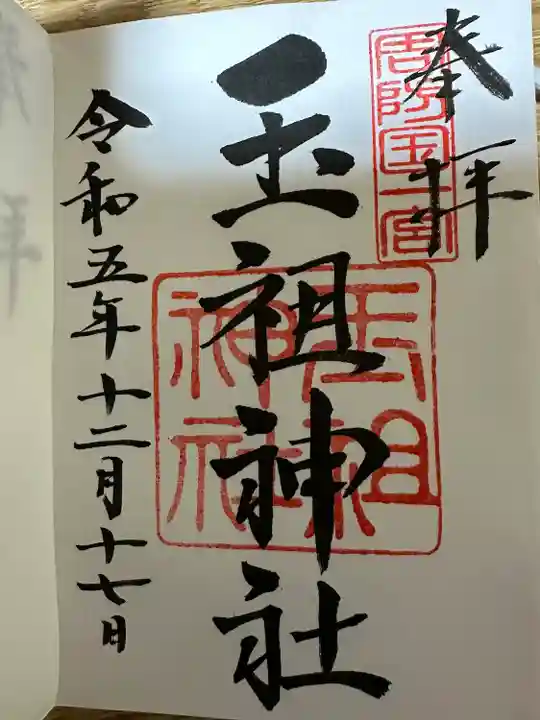 奉拝
周防国一宮
玉祖神社
玉祖
神社
令和五年十二月十七日